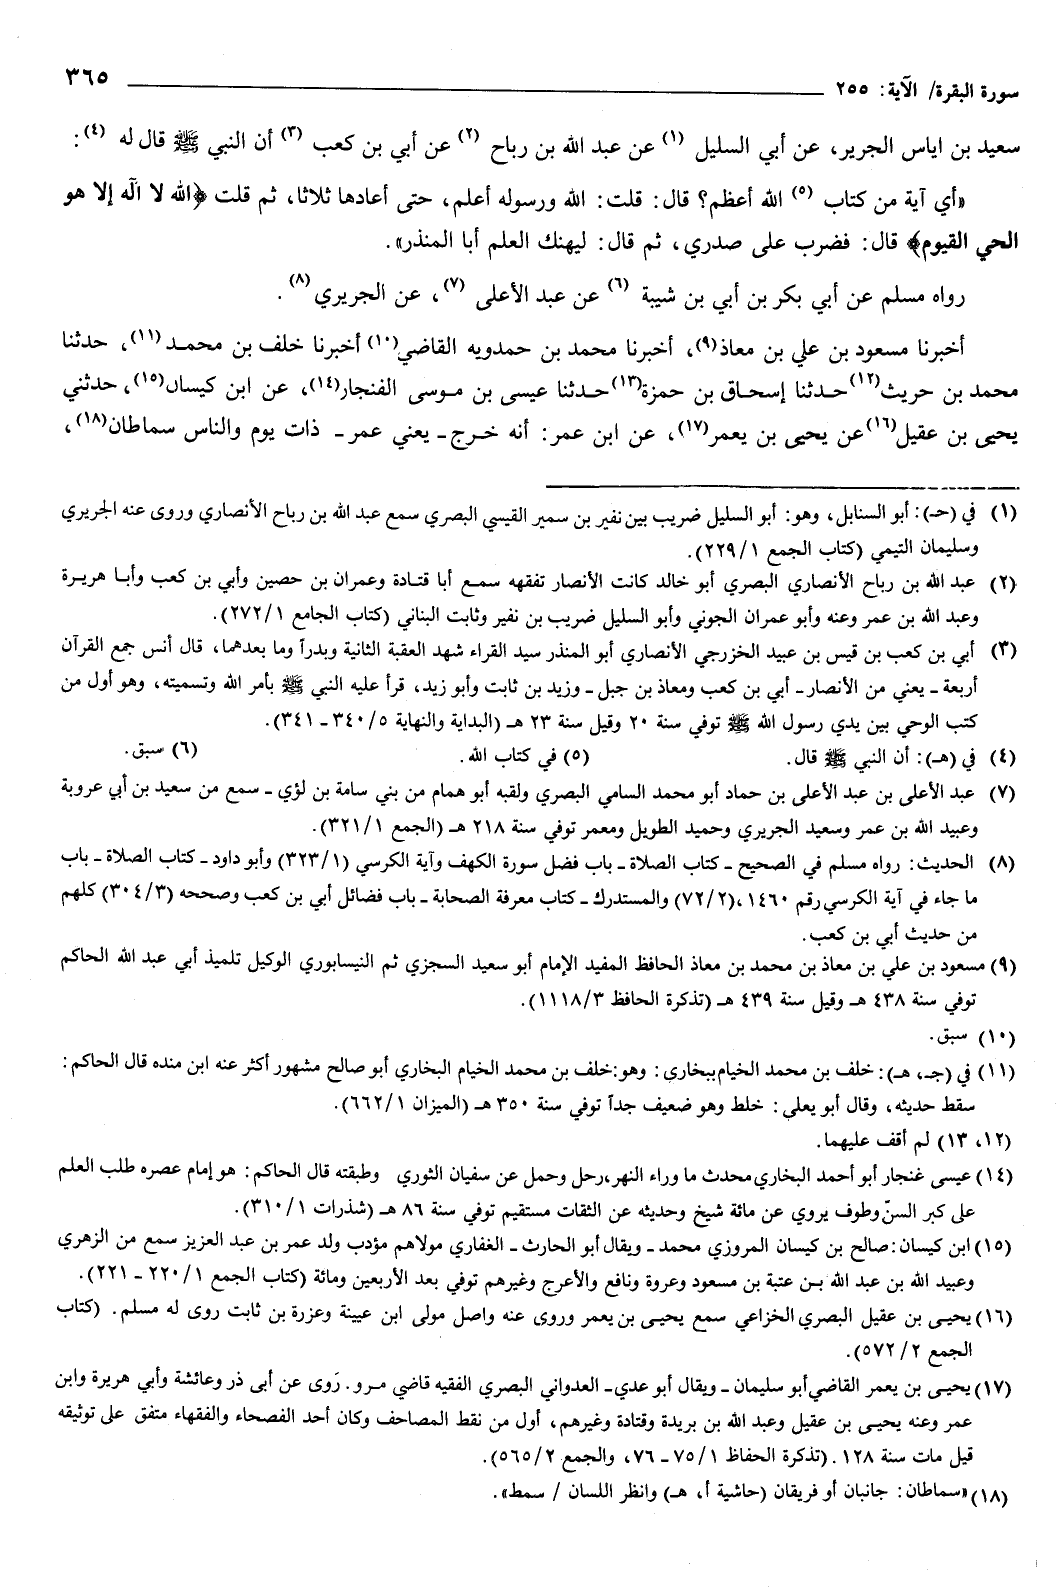 سورة البقرة/ الآية: ٢٥٥ ٣٦٥
سعيد بن اياس الجرير، عن أبي السليل (١) عن عبد الله بن رباح (٢) عن أبي بن كعب (٣) أن النبي ﷺ قال له (٤):
«أي آية من كتاب (٥) الله أعظم؟ قال: قلت: الله ورسوله أعلم، حتى أعادها ثلاثا، ثم قلت ﴿الله لا اله إلا هو
الحي القيوم﴾ قال: فضرب على صدري، ثم قال: ليهنك العلم أبا المنذر».
رواه مسلم عن أبي بكر بن أبي بن شيبة (٦) عن عبد الأعلى (٧)، عن الجريري (٨).
أخبرنا مسعود بن علي بن معاذ(٩)، أخبرنا محمد بن حمدويه القاضي(١٠) أخبرنا خلف بن محمد(١١)، حدثنا
محمد بن حريث(١٢) حدثنا إسحاق بن حمزة(١٣) حدثنا عيسى بن موسى الفنجار(١٤)، عن ابن كيسان(١٥)، حدثني
يحيى بن عقيل(١٦) عن يحيى بن يعمر(١٧)، عن ابن عمر: أنه خرج - يعني عمر - ذات يوم والناس سماطان(١٨)،
(١) في (حـ): أبو السنابل، وهو: أبو السليل ضريب بين نفير بن سمير القيسي البصري سمع عبد الله بن رباح الأنصاري وروى عنه الجريري
وسليمان التيمي (كتاب الجمع ١/ ٢٢٩).
(٢) عبد الله بن رباح الأنصاري البصري أبو خالد كانت الأنصار تفقهه سمع أبا قتادة وعمران بن حصين وأبي بن كعب وأبا هريرة
وعبد الله بن عمر وعنه وأبو عمران الجوني وأبو السليل ضريب بن نفير وثابت البناني (كتاب الجامع ١/ ٢٧٢).
(٣) أبي بن كعب بن قيس بن عبيد الخزرجي الأنصاري أبو المنذر سيد القراء شهد العقبة الثانية وبدراً وما بعدهما، قال أنس جمع القرآن
أربعة - يعني من الأنصار - أبي بن كعب ومعاذ بن جبل - وزيد بن ثابت وأبو زيد، قرأ عليه النبي ﷺ بأمر الله وتسميته، وهو أول من
كتب الوحي بين يدي رسول الله ﷺ توفي سنة ٢٠ وقيل سنة ٢٣ هـ (البداية والنهاية ٥/ ٣٤٠ - ٣٤١).
(٤) في (هـ): أن النبي ﷺ قال. (٥) في كتاب الله. (٦) سبق.
(٧) عبد الأعلى بن عبد الأعلى بن حماد أبو محمد السامي البصري ولقبه أبو همام من بني سامة بن لؤي - سمع من سعيد بن أبي عروبة
وعبيد الله بن عمر وسعيد الجريري وحميد الطويل ومعمر توفي سنة ٢١٨ هـ (الجمع ١/ ٣٢١).
(٨) الحديث: رواه مسلم في الصحيح - كتاب الصلاة - باب فضل سورة الكهف وآية الكرسي (١/ ٣٢٣) وأبو داود - كتاب الصلاة - باب
ما جاء في آية الكرسي رقم ١٤٦٠، (٢/ ٧٢) والمستدرك - كتاب معرفة الصحابة - باب فضائل أبي بن كعب وصححه (٣/ ٣٠٤) كلهم
من حديث أبي بن كعب.
(٩) مسعود بن علي بن معاذ بن محمد بن معاذ الحافظ المفيد الإمام أبو سعيد السجزي ثم النيسابوري الوكيل تلميذ أبي عبد الله الحاكم
توفي سنة ٤٣٨ هـ وقيل سنة ٤٣٩ هـ (تذكرة الحافظ ٣/ ١١١٨).
(١٠) سبق.
(١١) في (جـ، هـ): خلف بن محمد الخيام ببخاري: وهو: خلف بن محمد الخيام البخاري أبو صالح مشهور أكثر عنه ابن منده قال الحاكم:
سقط حديثه، وقال أبو يعلي: خلط وهو ضعيف جداً توفي سنة ٣٥٠ هـ (الميزان ١/ ٦٦٢).
(١٢، ١٣) لم أقف عليهما.
(١٤) عيسى غنجار أبو أحمد البخاري محدث ما وراء النهر، رحل وحمل عن سفيان الثوري وطبقته قال الحاكم: هو إمام عصره طلب العلم
على كبر السنّ وطوف يروي عن مائة شيخ وحديثه عن الثقات مستقيم توفي سنة ٨٦ هـ (شذرات ١/ ٣١٠).
(١٥) ابن كيسان: صالح بن كيسان المروزي محمد - ويقال أبو الحارث - الغفاري مولاهم مؤدب ولد عمر بن عبد العزيز سمع من الزهري
وعبيد الله بن عبد الله بن عتبة بن مسعود وعروة ونافع والأعرج وغيرهم توفي بعد الأربعين ومائة (كتاب الجمع ١/ ٢٢٠ - ٢٢١).
(١٦) يحيى بن عقيل البصري الخزاعي سمع يحيى بن يعمر وروى عنه واصل مولى ابن عيينة وعزرة بن ثابت روى له مسلم. (كتاب
الجمع ٢/ ٥٧٢).
(١٧) يحيى بن يعمر القاضي أبو سليمان - ويقال أبو عدي - العدواني البصري الفقيه قاضي مرو. رَوى عن أبى ذر وعائشة وأبي هريرة وابن
عمر وعنه يحيى بن عقيل وعبد الله بن بريدة وقتادة وغيرهم، أول من نقط المصاحف وكان أحد الفصحاء والفقهاء متفق على توثيقه
قيل مات سنة ١٢٨. (تذكرة الحفاظ ١/ ٧٥ - ٧٦، والجمع ٢/ ٥٦٥).
(١٨) «سماطان: جانبان أو فريقان (حاشية أ، هـ) وانظر اللسان / سمط».